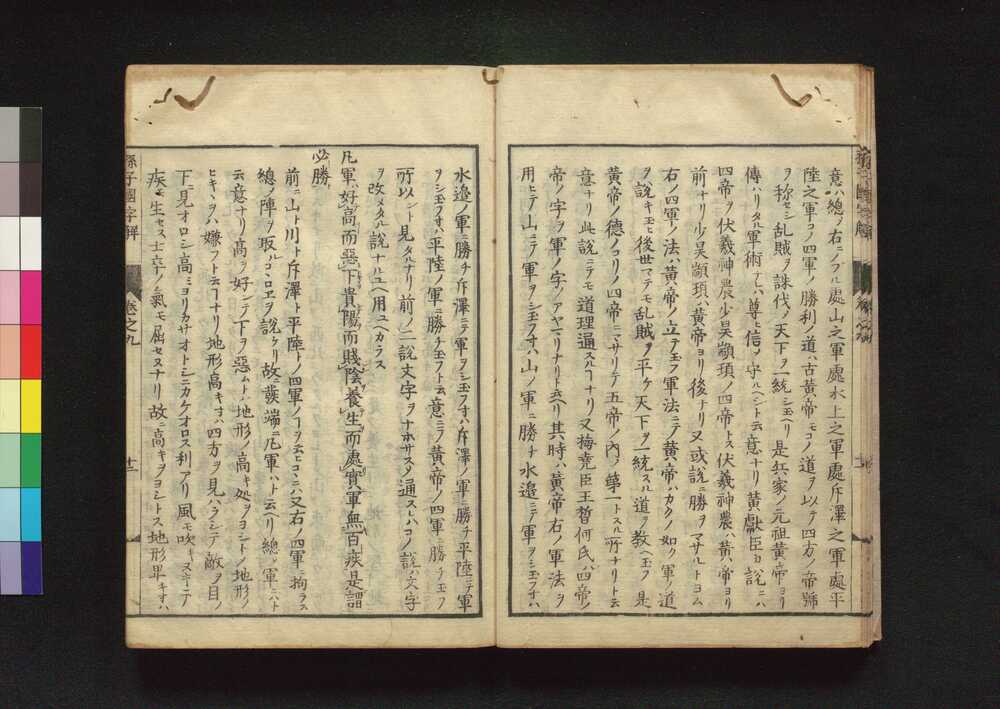 意ハ總〆右ニノブル處山之軍處水上之軍處斥澤之軍處平
陸之軍コノ四軍ノ勝利ノ道ハ古黄帝モコノ道ヲ以テ四方ノ帝號
ヲ称セシ乱賊ヲ誅伐〆天下ヲ一統シ玉ヘリ是兵家ノ元祖黄帝ヨリ
傳ハリタル軍術ナレハ尊ヒ信〆守ルヘシト云意ナリ黄獻臣カ說ニハ
四帝ヲ伏羲神農少昊顓頊ノ四帝トス伏羲神農ハ黄帝ヨリ
前ナリ少昊顓頊ハ黄帝ヨリ後ナリ又或說ニ勝ヲマサルトヨム
右ノ四軍ノ法ハ黄帝ノ立テ玉フ軍法ニテ黄帝ハカクノ如ク軍ノ道
ヲ說キ玉ヒ後世マテモ乱賊ヲ平ケ天下ヲ一統スル道ヲ教ヘ玉フ是
黄帝ノ德ノコリノ四帝ニマサリテ五帝ノ内ノ第一トスル所ナリト云
意ナリ此說ニテモ道理通スルナリ又梅堯臣王晳何氏ハ四帝ノ
帝ノ字ヲ軍ノ字ノアヤマリナリト云ヘリ其時ハ黄帝右ノ軍法ヲ
用ヒテ山ニテ軍ヲシ玉フオハ山ノ軍ニ勝チ水邉ニテ軍ヲシ玉フオハ
水邉ノ軍ニ勝チ斥澤ニテ軍ヲシ玉フオハ斥澤ノ軍ニ勝チ平陸ニテ軍
ヲシ玉フオハ平陸ノ軍ニ勝チ玉フト云意ニテ黄帝ノ四軍ニ勝チ玉フ
所以ント見タルナリ前ノ二說文字ヲナホサス〆通スレハコノ說ハ文字
ヲ改メタル說ナルユヘ用ユヘカラス
凡軍好高而惡下貴陽而賤陰養生而處實軍無百疾是謂
必勝
前ニ山ト川ト斥澤ト平陸トノ四軍ノヿヲ云ヒコヽニハ又右ノ四軍ニ拘ラス
總〆陣ヲ取ルコヽロヱヲ說ケリ故ニ發端ニ凡軍ハト云ヘリ總〆軍ニハト
云意ナリ高ヲ好ンテ下ヲ惡ムトハ地形ノ高キ処ヲヨシト〆地形ノ
ヒキヽヲハ嫌フト云ヿナリ地形高キオハ四方ヲ見ハラシテ敵ヲ目ノ
下ニ見オロシ高ミヨリカサオトシニカケオロス利アリ風モ吹キヌキニテ
疾モ生セス士卒ノ氣モ屈セヌナリ故ニ高キヲヨシトス地形卑キオハ
孫子國字解
卷之九
十二